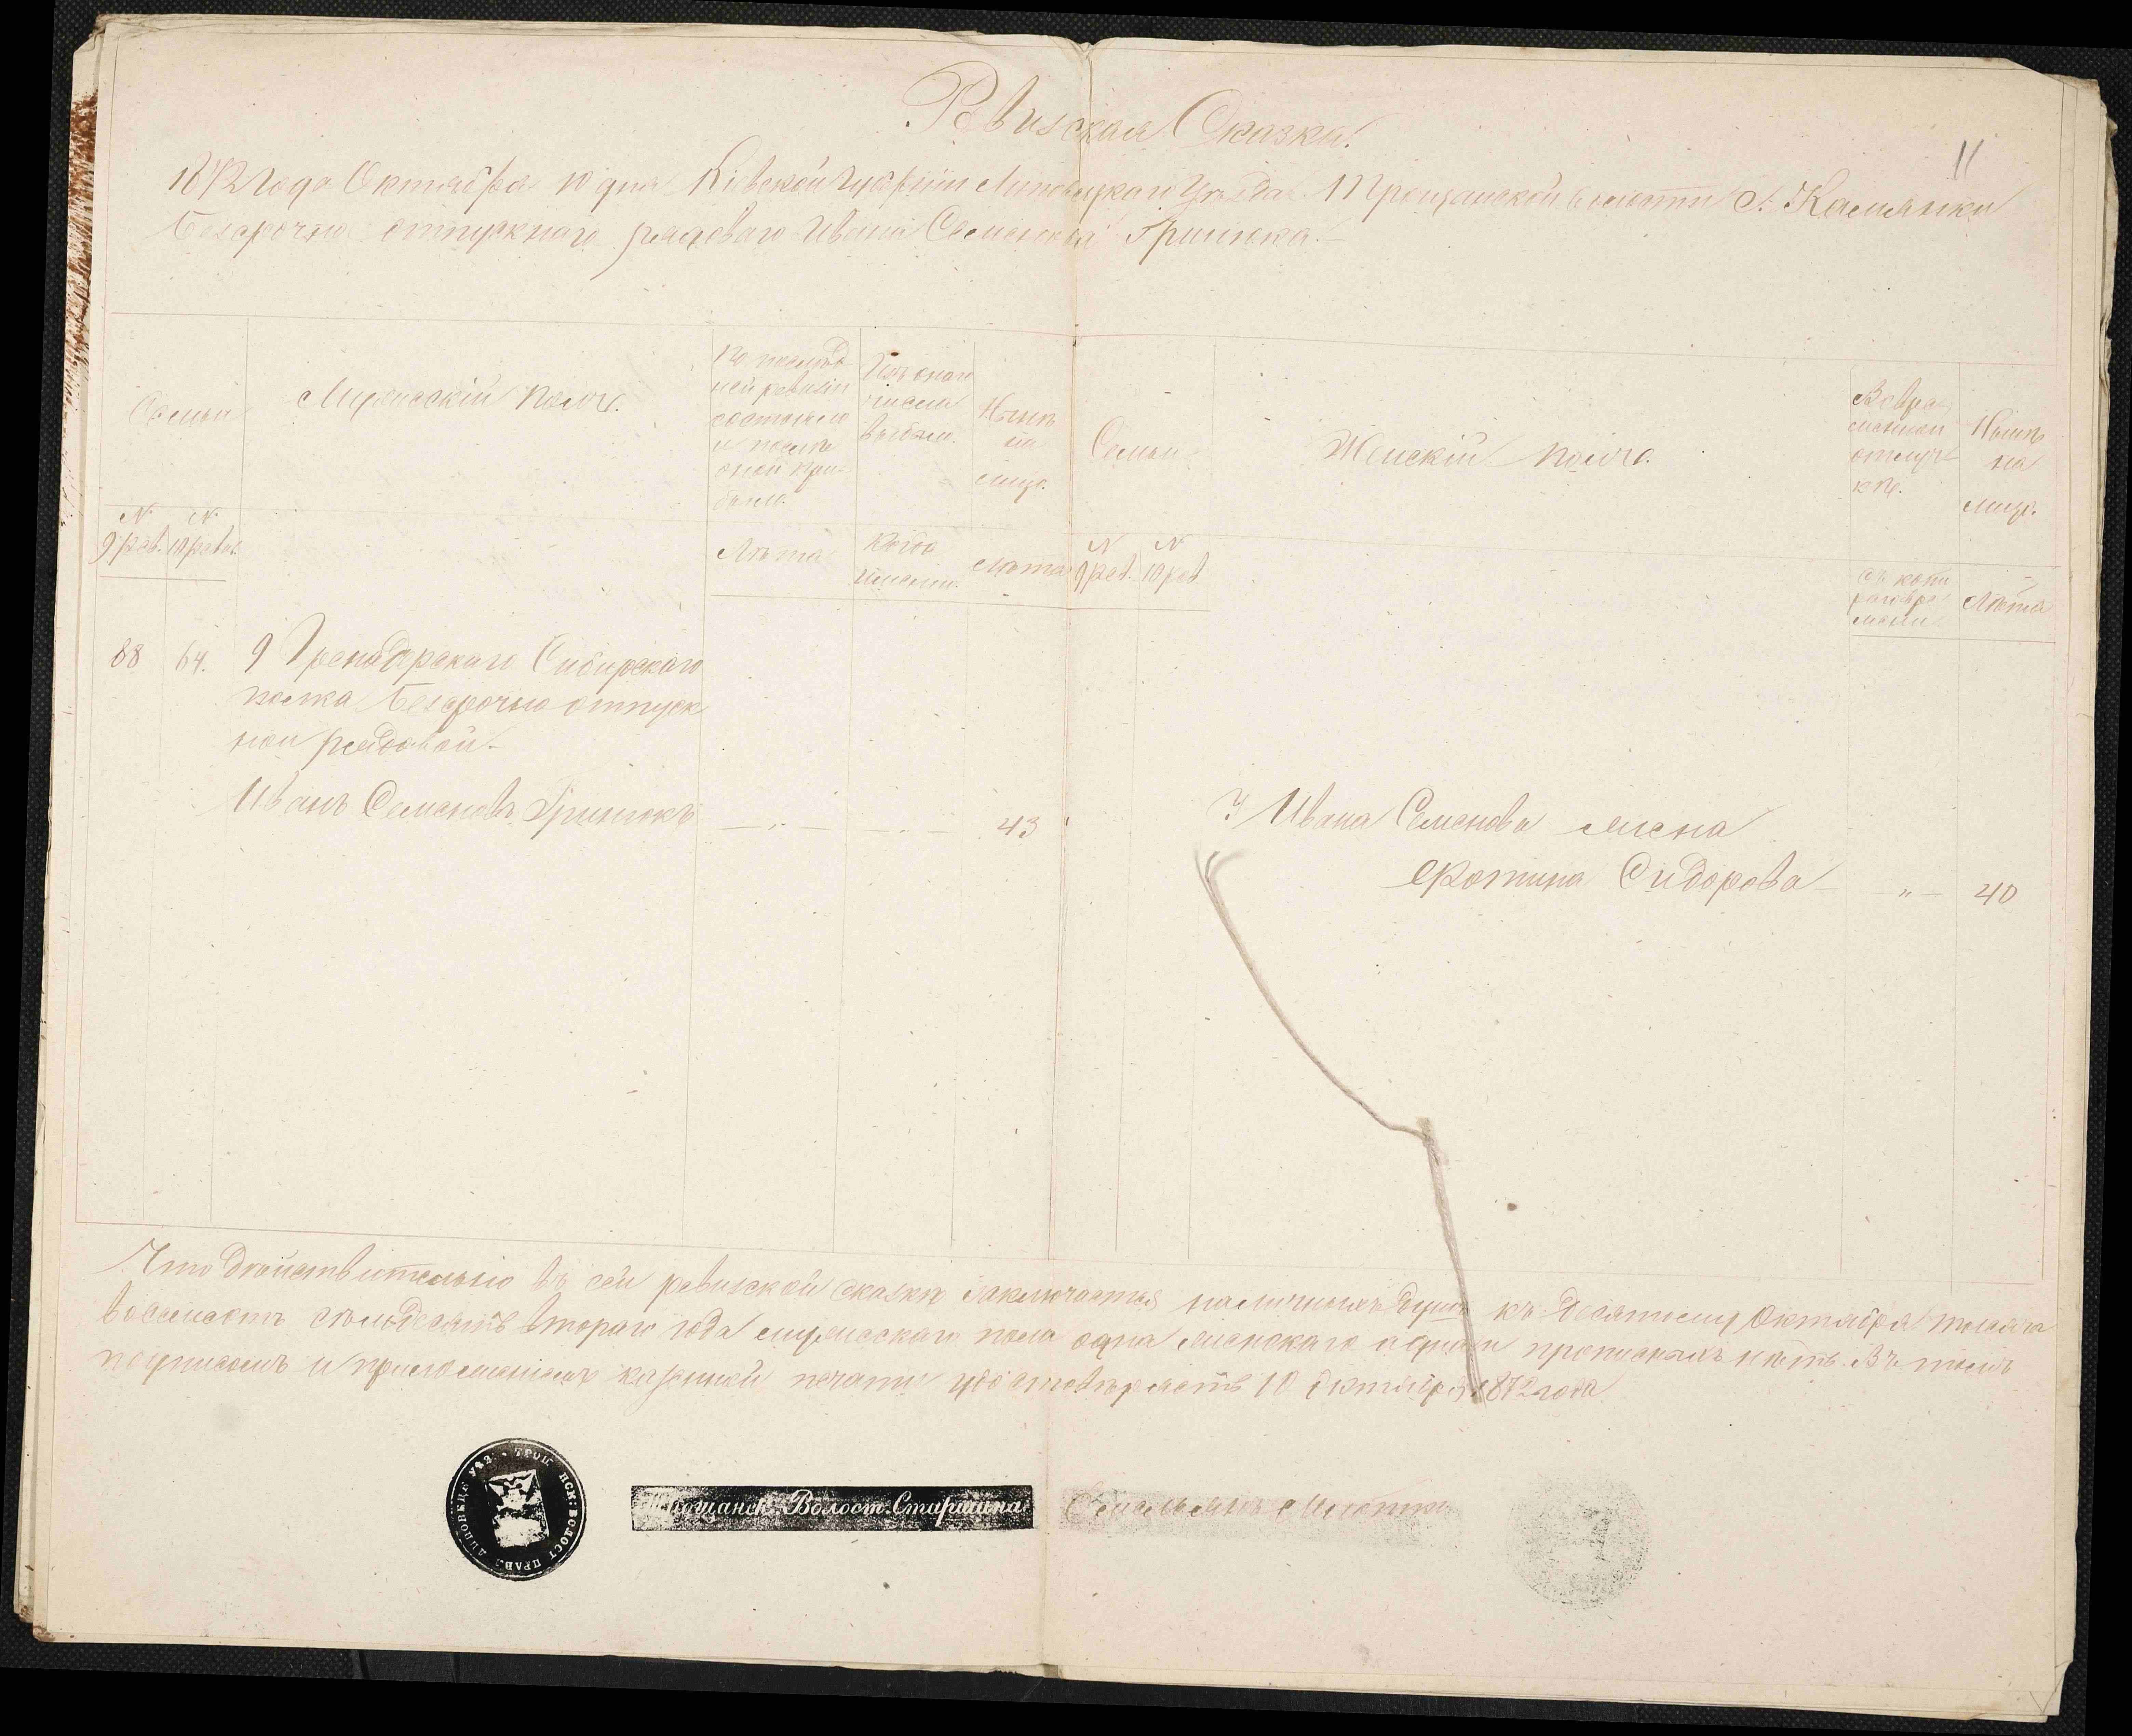 Ревизская Сказка.
11
1872 года Октября 10 дня Кіевской губерніи Липовецкаго Уѣзда Трощанской волости С. Камянки
безсрочно отпускнаго рядоваго Ивана Семенова Гринюка.
Семьи
Мужескій полъ.
По послѣд
ней ревизіи
состояло
и послѣ
оной при-
было.
Изъ онаго
числа
выбыло.
Нынѣ
на
лицо.
Семьи
Женскій полъ.
Во вре-
менной
отлуч-
кѣ.
Нынѣ
на
лицо.
№ №
9 рев. 10 ревиз.
Лѣта
Когда
именно.
Лѣта
№ №
9 рев. 10 рев
Съ кото
раго вре
мени
Лѣта
88 64. 9 Гренадерскаго Сибирскаго
полка безсрочно отпуск
ной рядовой.
Иванъ Семеновъ Гринюкъ — „ — — „ — 43
У Ивана Семенова жена
Сидорова — „ — 40
Что дѣйствительно въ сей ревизской сказкѣ заключается наличныхъ душъ къ десятому Октября тысяча
восемсотъ семьдесятъ втораго года мужескаго пола одна женскаго одна и прописныхъ нѣтъ. Въ томъ
подписомъ и приложеніемъ казенной печати удостовѣряетъ 10 Октября 1872 года
Трощанск. Волост. Старшина
ТРОЩ НСК: ВОЛОСТ ПРАВЛ ЛИПОВЕЦК УѢЗ.